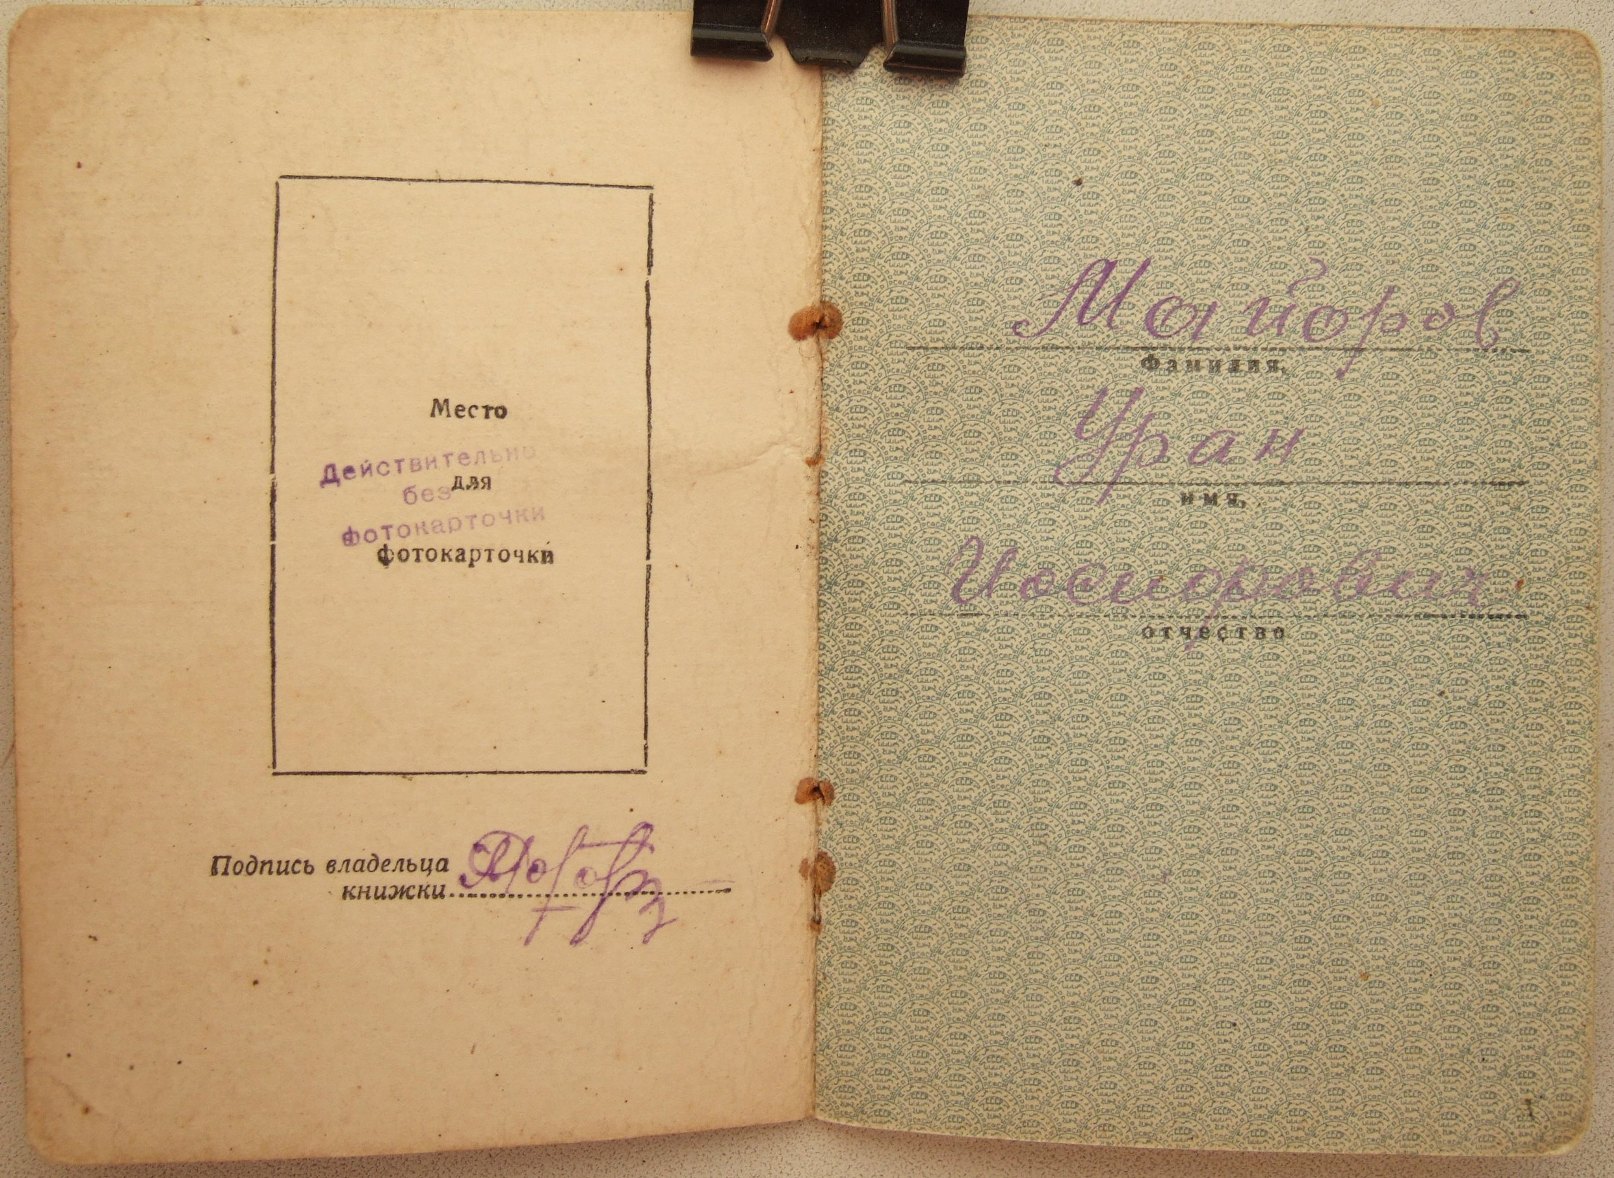 Место
Действительно
для
без
фотокарточки
фотокарточки
Подпись владельца
книжки
Майоров
Фамилия,
Уран
имя,
Иосифович
отчество
1